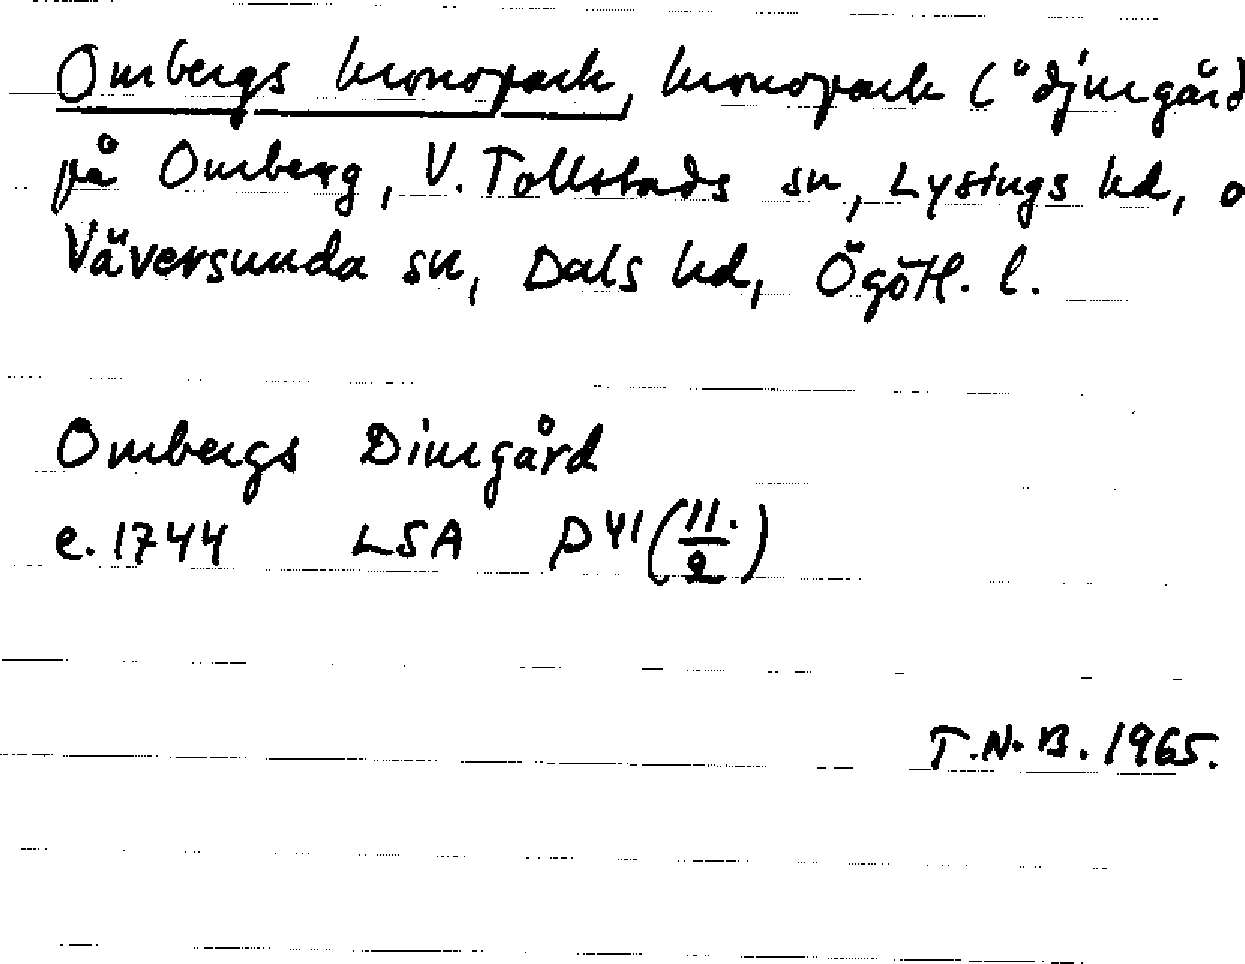 Ombergs kronopark, kronopark (°djurgård
på Omberg, V. Tollstads sn, Lysings hd, o
Väversunda sn, Dals hd, Ögötl. l.
Ombergs Diurgård
e. 1744 LSA D41 (11./2)
T.N.B. 1965.